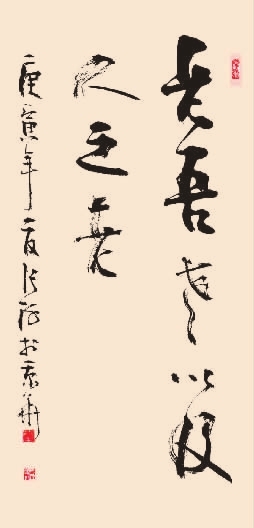 老吾老以及
人之老
庚寅年夏
於京華